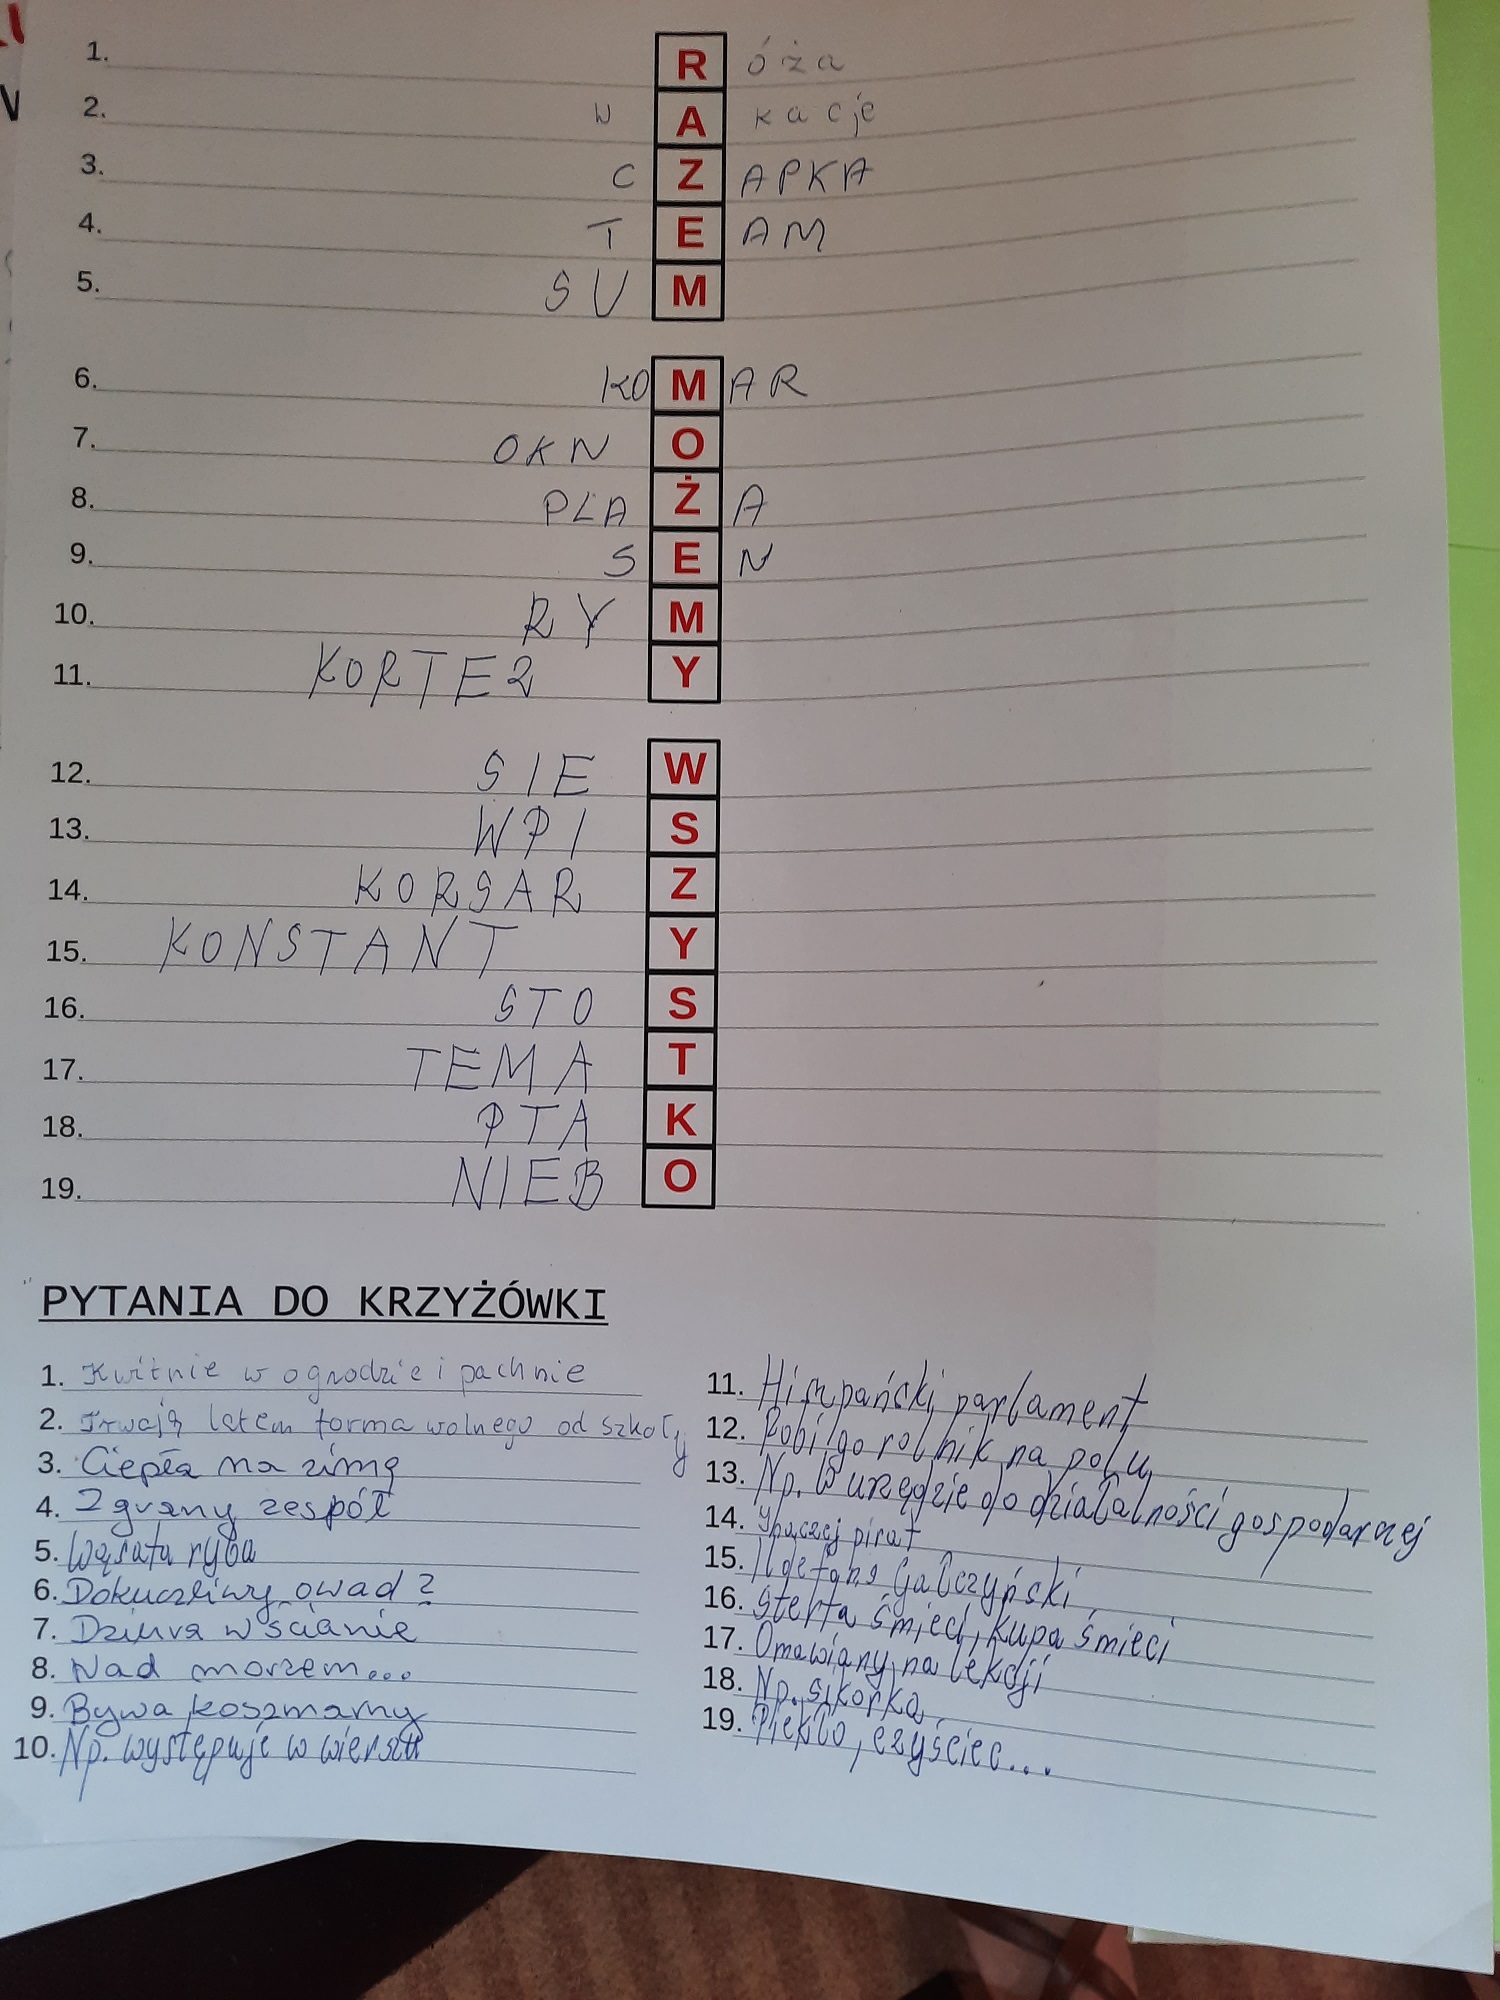 1. Róża
2. wAkacje
3. CZAPKA
4. TEAM
5. SUM
6. KOMAR
7. OKNO
8. PLAŻA
9. SEN
10. RYM
11. KORTEZY
12. SIEW
13. WPIS
14. KORSARZ
15. KONSTANTY
16. STOS
17. TEMAT
18. PTAK
19. NIEBO
PYTANIA DO KRZYŻÓWKI
1. Kwitnie w ogrodzie i pachnie
2. Trwają latem forma wolnego od szkoły
3. Ciepła na zimę
4. Zgrany zespół
5. Wąsata ryba
6. Dokuczliwy owad?
7. Dziura w ścianie
8. Nad morzem...
9. Bywa koszmarny
10. Np. występuje w wierszu
11. Hiszpański parlament
12. Robi go rolnik na polu
13. Np. w urzędzie do działalności gospodarczej
14. Inaczej pirat
15. Ildefons Gałczyński
16. Sterta śmieci, kupa śmieci
17. Omawiany na lekcji
18. Np. sikorka
19. Piekło, czyściec...